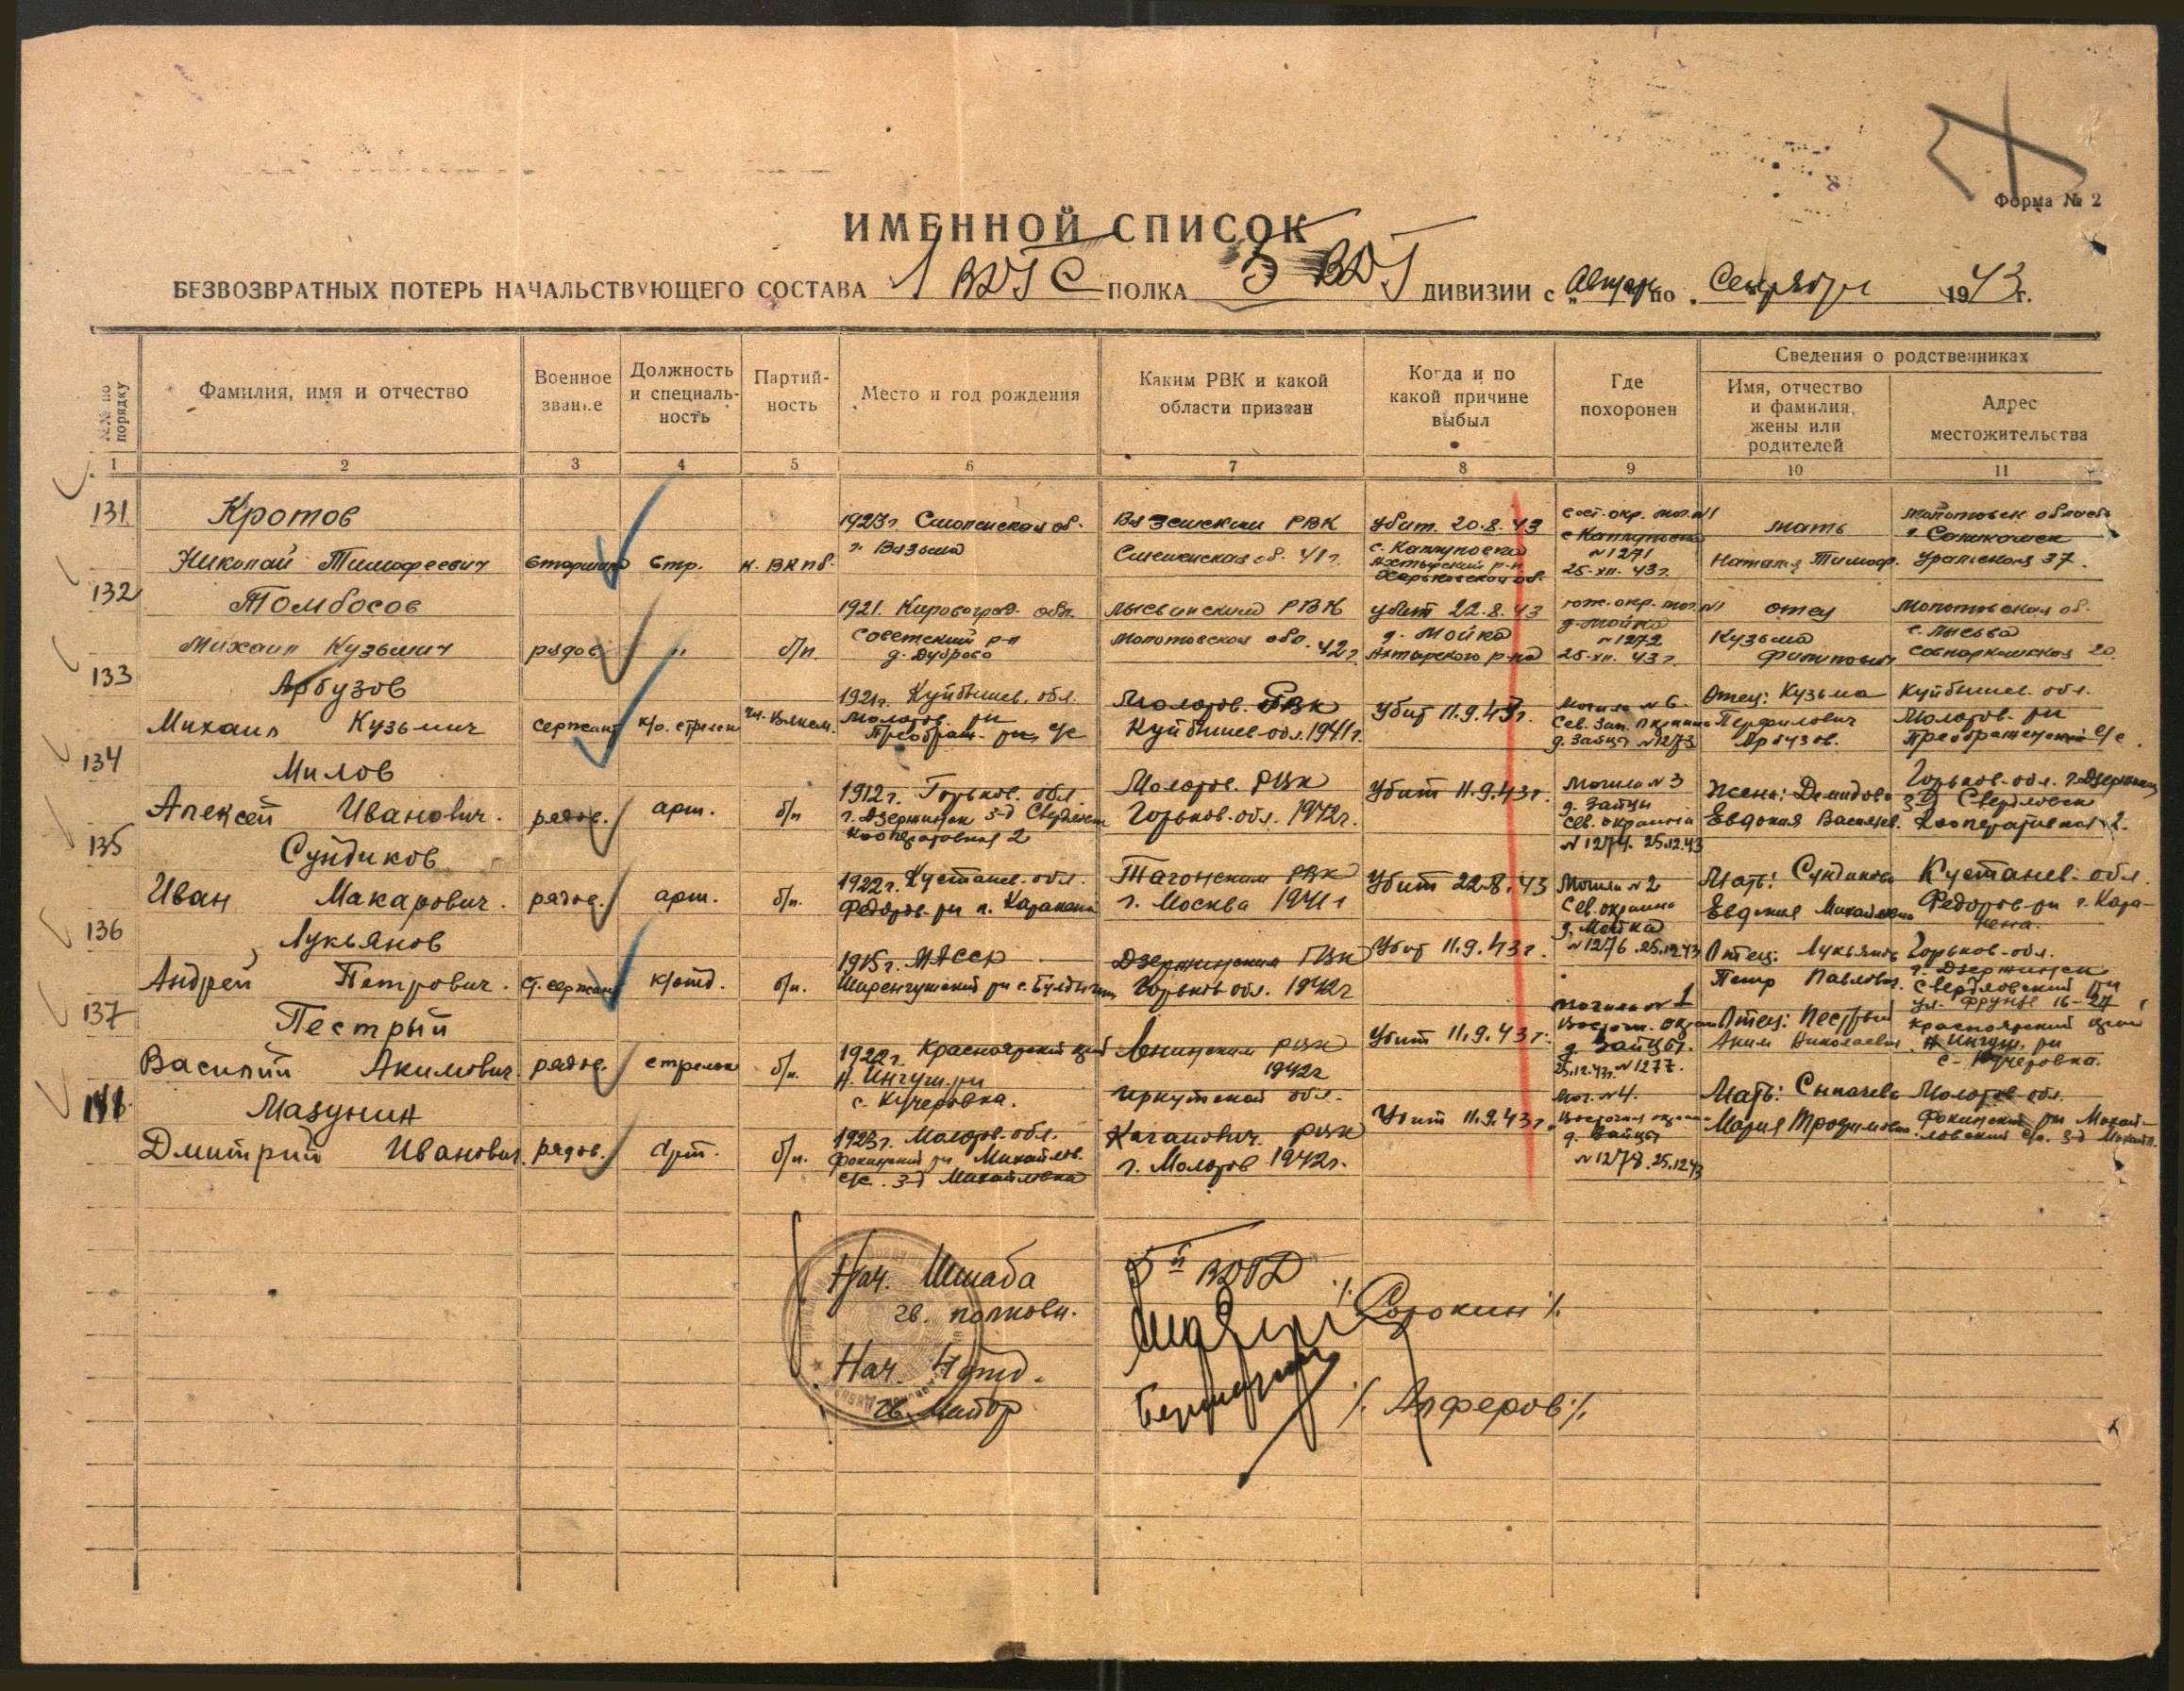 Форма № 2
ИМЕННОЙ СПИСОК
БЕЗВОЗВРАТНЫХ ПОТЕРЬ НАЧАЛЬСТВУЮЩЕГО СОСТАВА 1 ВДГС ПОЛКА 5 ВДГ ДИВИЗИИ с по Сентябрь 1943 г.
№№ по порядку
Фамилия, имя и отчество
Военное звание
Должность и специальность
Партийность
Место и год рождения
Каким РВК и какой области призван
Когда и по какой причине выбыл
Где похоронен
Сведения о родственниках
Имя, отчество и фамилия, жены или родителей
Адрес местожительства
1 2 3 4 5 6 7 8 9 10 11
131 Кротов
Николай Тимофеевич
Стр.
1923г. Смоленская об.
г. Вязьма
Вяземским РВК
Смоленская об. 41г.
убит. 20.8.43
№ 1271
25-XII. 43г.
мать
Уральская 37.
132 Томбосов
Михаил Кузьмич
рядов.
"
б/п
1921. Кировоград. обл.
Советский р-н
д. Дуброво
Лысьвинский РВК
Молотовская обл. 42г.
убит 22.8.43
д. Мойка
Ахтырского р-на
д. Мойка
№ 1272
25-XII. 43г.
отец
Кузьма
Филипович
Молотовская об.
г. Лысьва
20
133 Арбузов
Михаил Кузьмич
сержант
к/о. стрелк
чл. Влксм.
1921г. Куйбышев. обл.
Молотов. рн
Преображ. с/с
Молотов. РВК
Куйбышев обл. 1941г.
Убит 11.9.43г.
Могила № 6
Сев. Зап. окраина
д. Зайцы № 1273
Отец: Кузьма
Перфилович
Арбузов.
Куйбышев. обл.
Молотов. рн
с/с.
134 Милов
Алексей Иванович.
рядов.
арт.
б/п
1912г. Горьков. обл.
г. Дзержинск з-д Свердлова
Кооперативная 2
Молотов. РВК
Горьков. обл. 1942г.
Убит 11.9.43г.
Могила № 3
д. Зайцы
Сев. окраина
№ 1274. 25.12.43
Жена: Демидова
Евдокия Васильев.
Горьков. обл. г. Дзержинск
Кооперативная 2.
135 Сундиков
Иван Макарович.
рядов.
арт.
б/п.
1922г. Кустанев. обл.
Федоров. рн
Таганским РВК
г. Москва 1941г
Убит 22.8.43
Могила № 2
Сев. окраина
д. Мойка
№ 1276. 25.12.43
Мать: Сундикова
Евдокия Михайловна
Кустанев. обл.
Федоров. рн
136 Лукьянов
Андрей Петрович.
Ст. сержант
к/отд.
б/п.
1915г. МАССР
Дзержинским РВК
Горьков. обл. 1942г
Убит 11.9.43г.
Отец: Лукьянов
Петр Павлович.
Горьков. обл.
г. Дзержинск
Свердловский рн
ул. Фрунзе 16-27
137 Пестрый
Василий Акимович
рядов.
стрелок
б/п.
1922г. Красноярский край
Н. Ингуш. рн
с. Кучеровка.
Ленинским РВК
1942г
Иркутской обл.
Убит 11.9.43г.
Могила № 1
Восточн. окраин
д. Зайцы.
25.12.43г. № 1277.
Отец: Пестрый
Аким Николаевич
Красноярский край
Н. Ингуш. рн
с. Кучеровка.
Мазунин
Дмитрий Иванович
рядов.
Арт.
б/п.
1923г. Молотов. обл.
Фокинский рн Михайлов.
с/с. з-д Михайловка
Каганович. РВК
г. Молотов 1942г.
Убит 11.9.43г.
Мог. № 4.
Восточная окраина
д. Зайцы
№ 1278. 25.12.43
Молотов. обл.
Фокинский рн
Нач. Штаба 5й ВДГД
гв. полковн. /. Сорокин /.
Нач. 4 отд.
гв. Майор /. Алферов /.